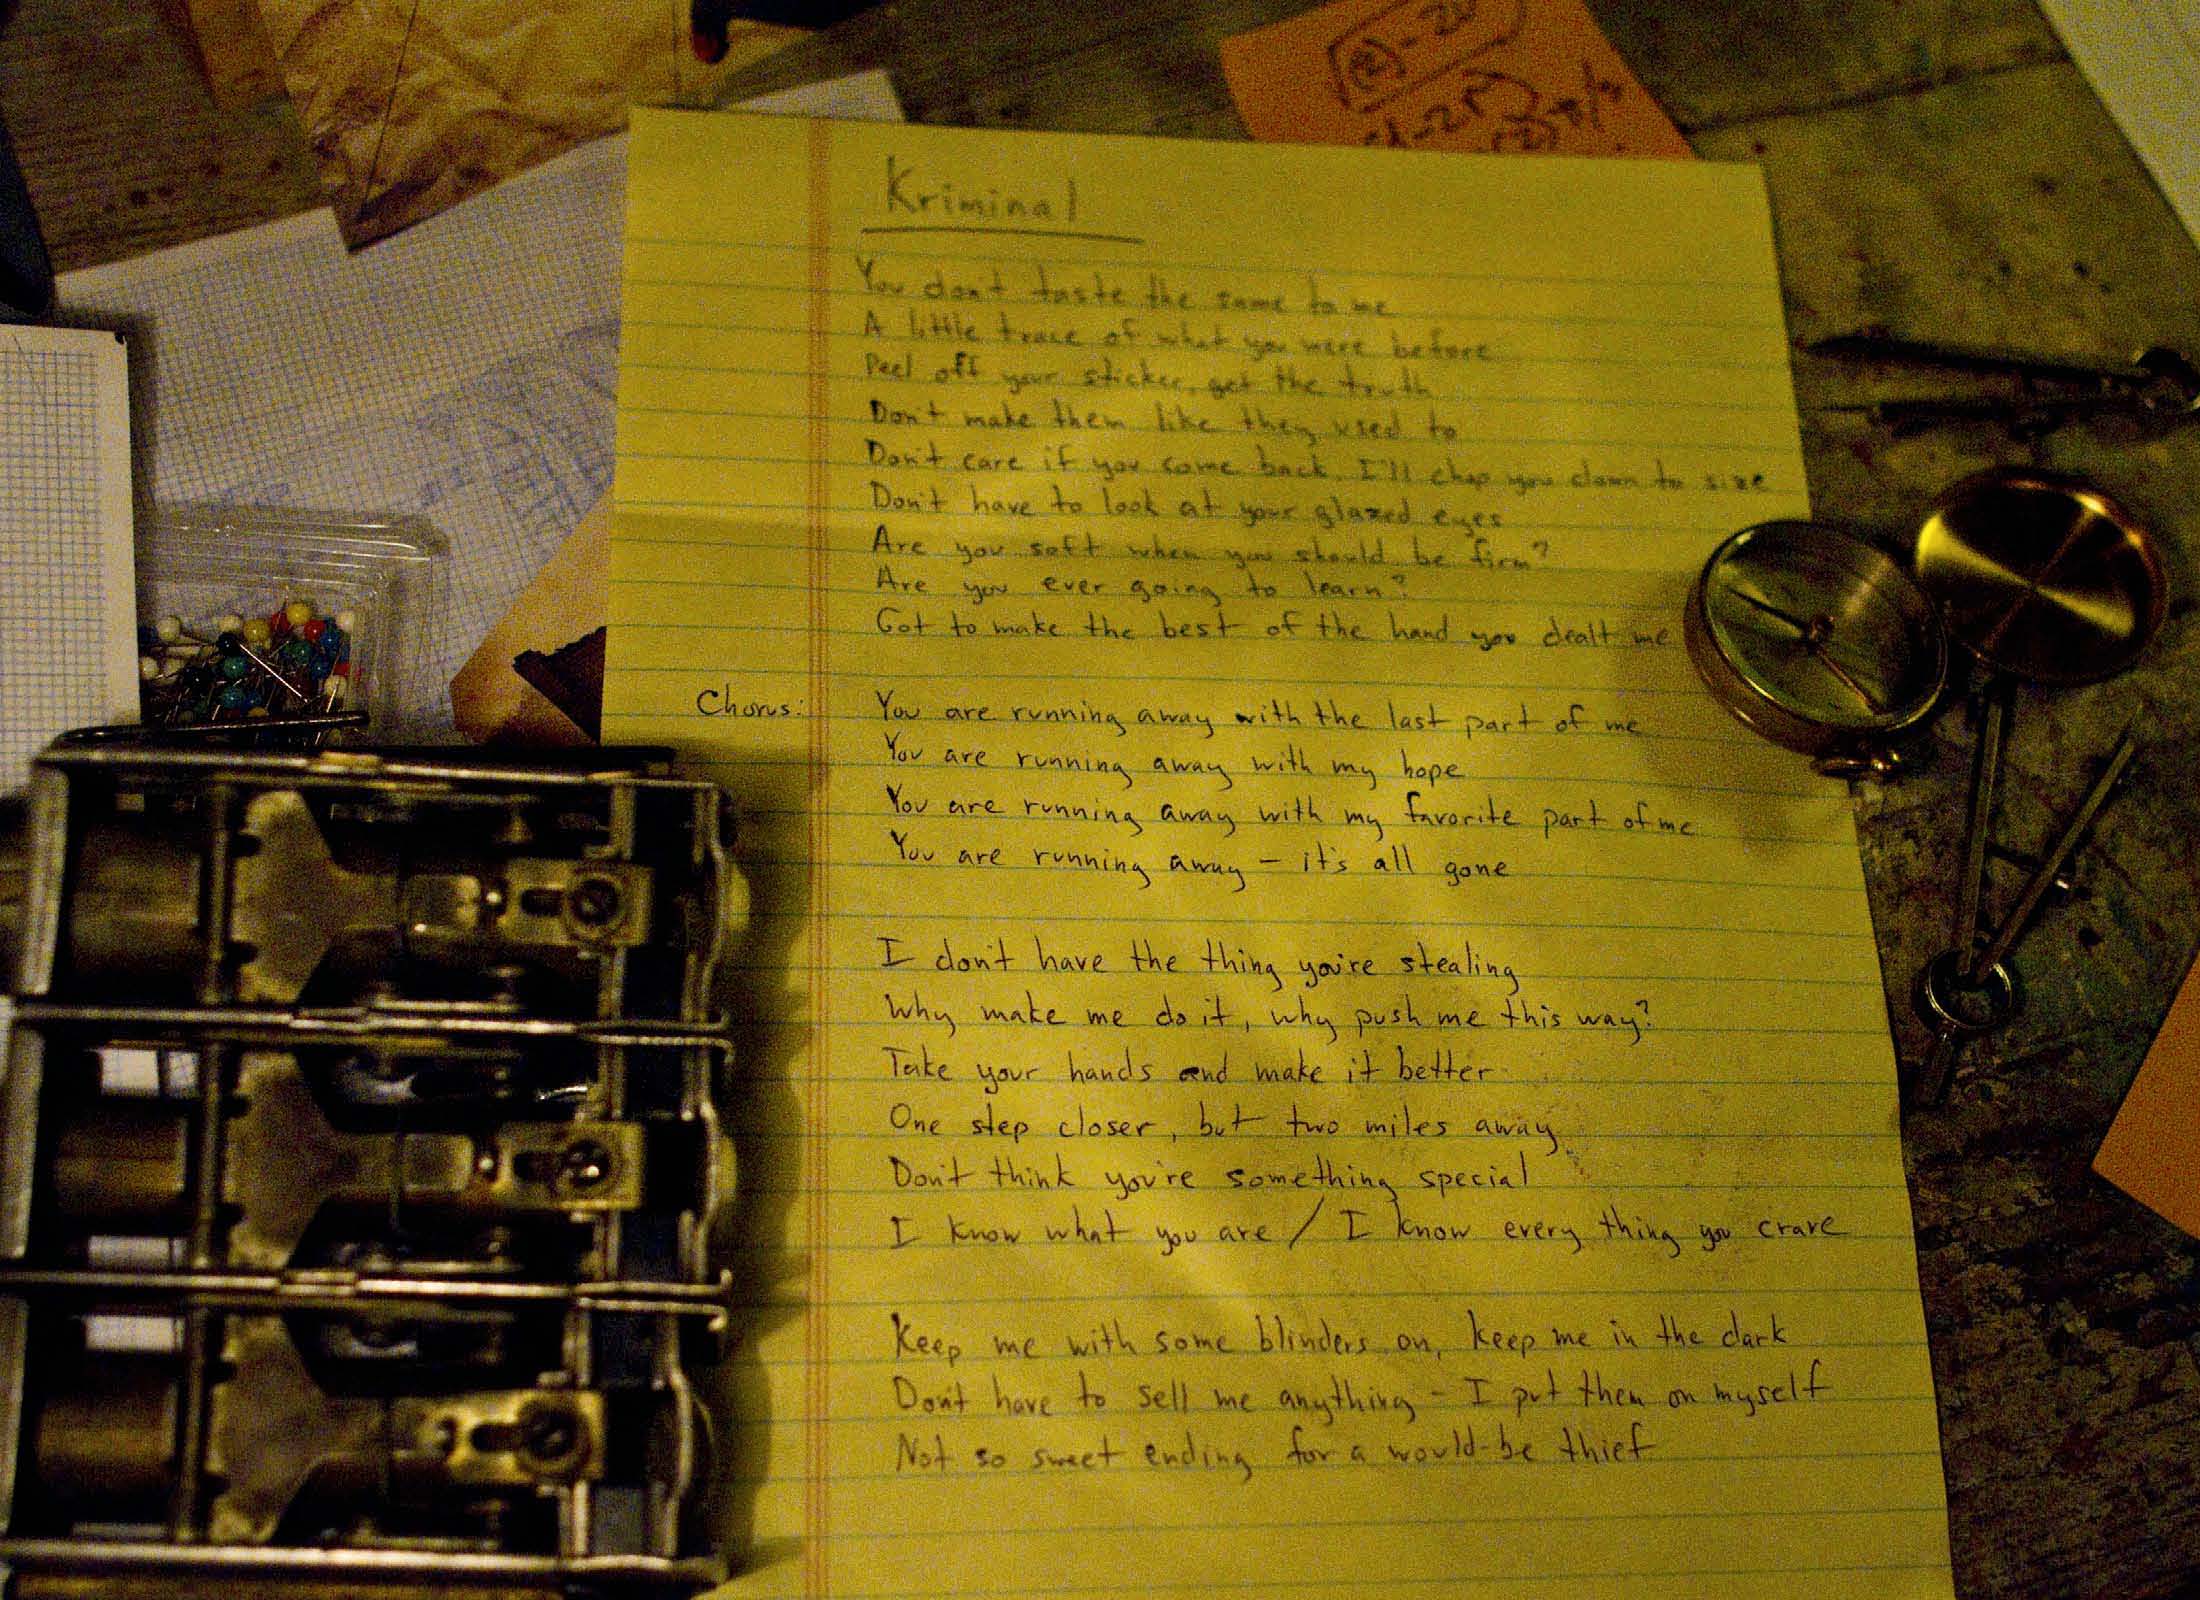 Kriminal
You don't taste the same to me
A little trace of what you were before
Peel off your sticker, get the truth
Don't make them like they used to
Don't care if you come back, I'll chop you down to size
Don't have to look at your glazed eyes
Are you soft when you should be firm?
Are you ever going to learn?
Got to make the best of the hand you dealt me
Chorus: You are running away with the last part of me
You are running away with my hope
You are running away with my favorite part of me
You are running away – it's all gone
I don't have the thing you're stealing
Why make me do it, why push me this way?
Take your hands and make it better
One step closer, but two miles away
Don't think you're something special
I know what you are / I know every thing you crave
Keep me with some blinders on, keep me in the dark
Don't have to sell me anything – I put them on myself
Not so sweet ending for a would-be thief